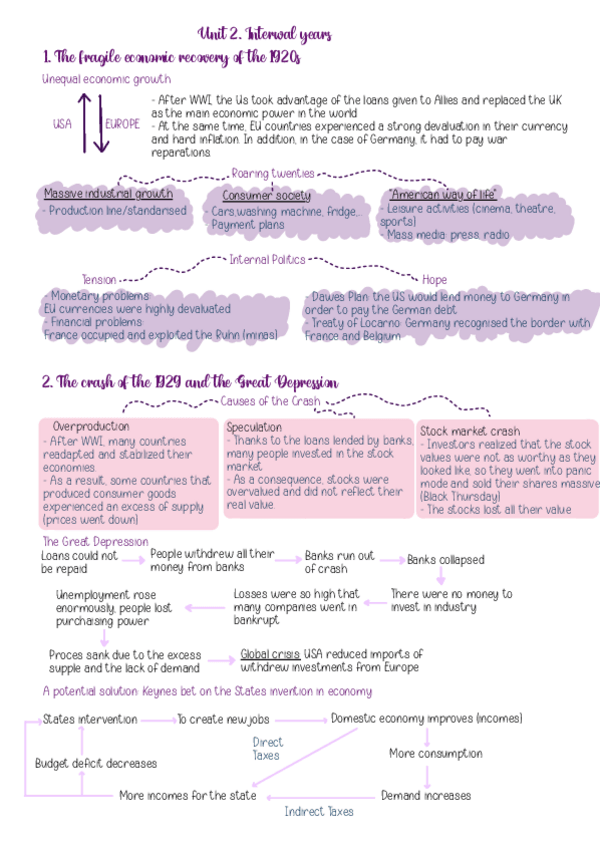 Unit 2. Interwal years
1. The fragile economic recovery of the 1920s
Unequal economic growth
USA
EUROPE
- After WWI, the Us took advantage of the loans given to Allies and replaced the UK
as the main economic power in the world
- At the same time, EU countries experienced a strong devaluation in their currency
and hard inflation. In addition, in the case of Germany, it had to pay war
reparations.
Roaring twenties
Massive industrial growth
- Production line/standarised
Consumer society
- Cars,washing machine, fridge,...
- Payment plans
"American way of life"
- Leisure activities (cinema, theatre,
sports)
- Mass media: press, radio...
Internal Politics
Tension
- Monetary problems
EU currencies were highly devaluated
- Financial problems
France occupied and exploited the Ruhn (minas)
Hope
- Dawes Plan: the US would lend money to Germany in
order to pay the German debt
- Treaty of Locarno: Germany recognised the border with
France and Belgium
2. The crash of the 1929 and the Great Depression
Causes of the Crash
Overproduction
- After WWI, many countries
readapted and stabilized their
economies.
- As a result, some countries that
produced consumer goods
experienced an excess of supply
(prices went down)
Speculation
- Thanks to the loans lended by banks,
many people invested in the stock
market
- As a consequence, stocks were
overvalued and did not reflect their
real value.
Stock market crash
- Investors realized that the stock
values were not as worthy as they
looked like, so they went into panic
mode and sold their shares massive
(Black Thursday)
- The stocks lost all their value
The Great Depression
Loans could not
be repaid
People withdrew all their
money from banks
Banks run out
of crash
Banks collapsed
There were no money to
invest in industry
Losses were so high that
many companies went in
bankrupt
Unemployment rose
enormously, people lost
purchaising power
Proces sank due to the excess
supple and the lack of demand
Global crisis: USA reduced imports of
withdrew investments from Europe
A potential solution: Keynes bet on the States invention in economy
States intervention
To create new jobs
Domestic economy improves (incomes)
Direct
Taxes
More consumption
Budget deficit decreases
More incomes for the state
Demand increases
Indirect Taxes